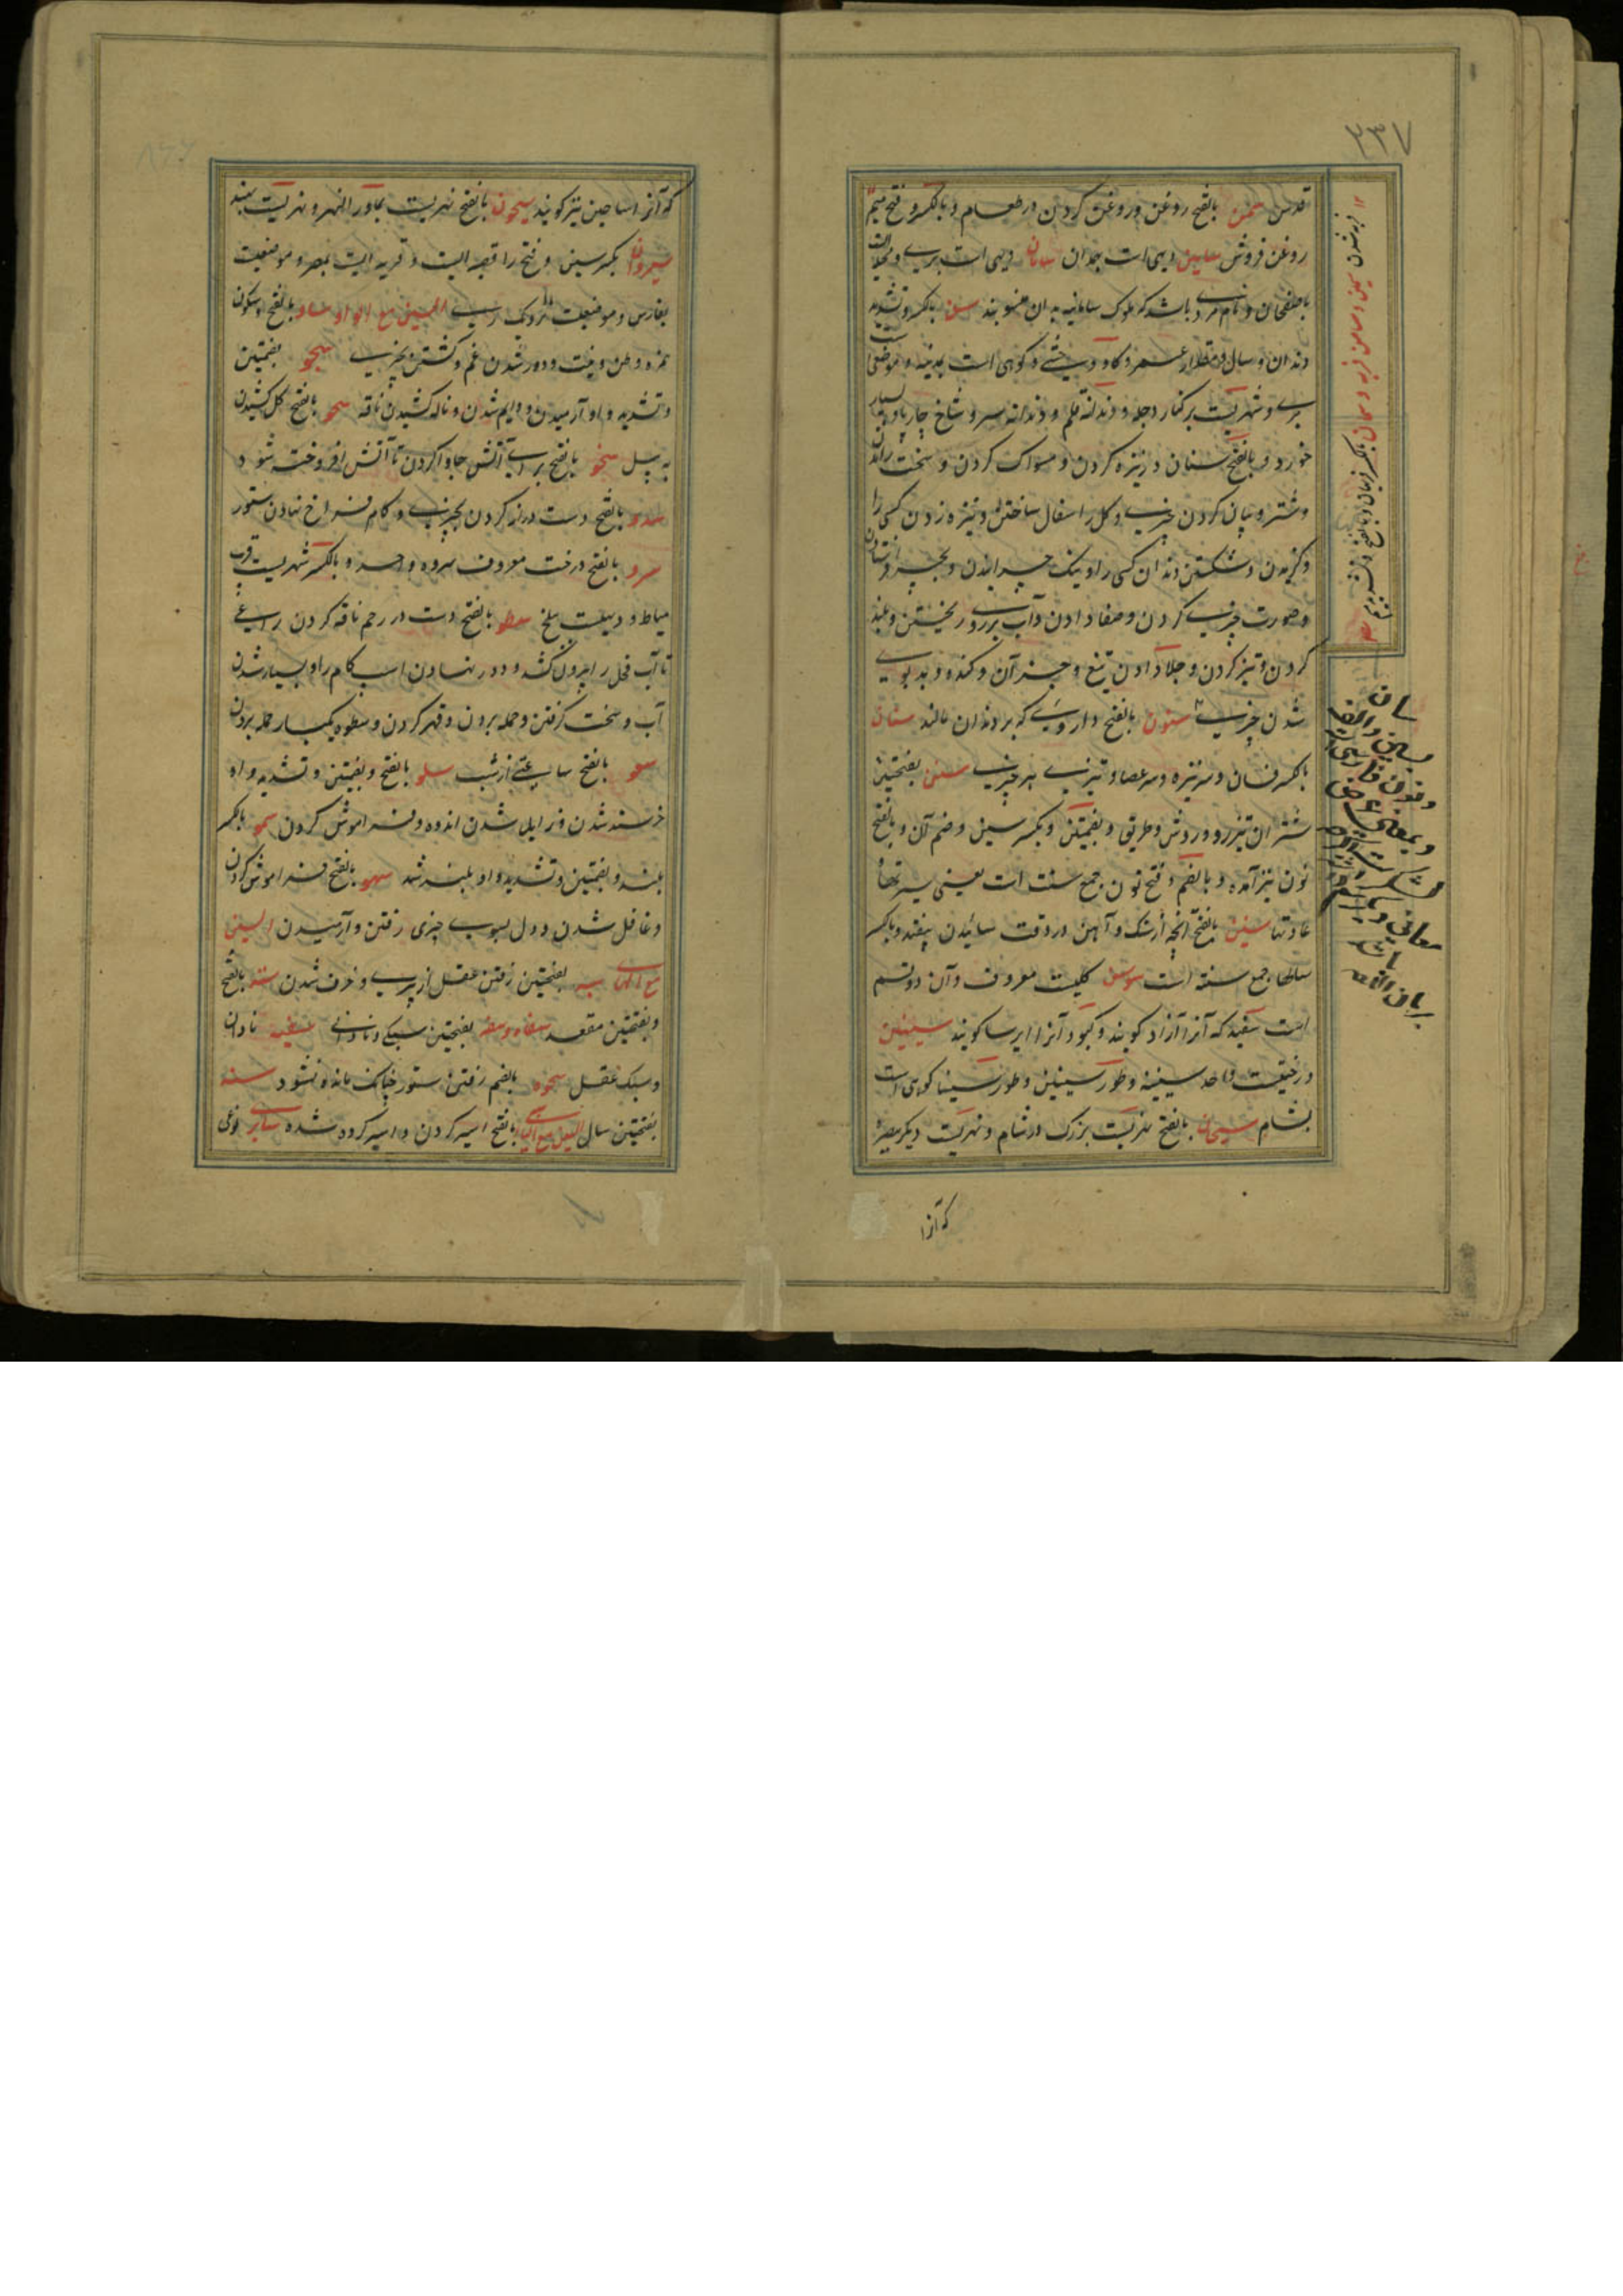 ۳۳۷
قدس سمن بالفتح روغن و روغن کردن در طعام و بالکسر و فتح میم
روغن فروش سامین دیهی است بهمدان سامان دیهی است بری و محله ایست
باصفهان و نام مردی باشد که ملوک سامانیه بدان منسوبند سن بالکسر و تشدید
دندان و سال و مقدار عمر و گاو وحشی و کوهی است بمدینه و موضعی است
بری و شهریست بر کنار دجله و دندانه قلم و دندانه سر و شاخ چارپا و بسیار
خوردن و بالفتح سنان در نیزه کردن و مسواک کردن و سخت راندن
و شتر و بیان کردن چیزی و گل را سفال ساختن و نیزه زدن کسی را
و گزیدن و شکستن دندان کسی را و نیک چرانیدن و بچرا فرستادن
و صورت چیزی کردن و صفا دادن و آب بر روی ریختن و بلند
کردن و تیز کردن و جلا دادن تیغ و جز آن و گنده و بدبوی
شدن چیزی سنون بالفتح داروی که بر دندان مالند سنان
بالکسر فسان و سر نیزه و سر عصا و تیزی هر چیزی سنن بفتحتین
شتران تیزرو و روش و طریق و بضمتین و بکسر سین و ضم آن و بالفتح
نون نیز آمده و بالضم و فتح نون جمع سنت است یعنی سیرتها و
عادتها سنین بالفتح آنچه از سنگ و آهن در وقت سائیدن بیفتد و بالکسر
سالها جمع سنة است سوسن گلیست معروف و آن دو قسم
است سفید که آنرا آزاد گویند و کبود آنرا ایرسا گویند سینین
درختیست واحد سینینه و طور سینین و طور سینا کوهی است
بشام سیحان بالفتح نهریست بزرگ در شام و نهریست دیگر ببصره
که آنرا
سان
بسین و الف
و نون فارسی
که آنرا ساحین نیز گویند سیحون بالفتح نهریست بماورالنهر و نهریست بهند
سیروان بکسر سین و فتح را قصبه ایست و قریه ایست بمصر و موضعیست
بفارس و موضعیست نزدیک ری السین مع الواو ساو بالفتح و سکون
همزه وطن و نیت و دور شدن غم و گشتن بچیزی سجو بضمتین
و تشدید واو آرمیدن و دایم شدن و ناله کشیدن ناقه سحو بالفتح گل کشیدن
به بیل سخو بالفتح برای آتش جا وا کردن تا آتش افروخته شود
سدو بالفتح دست دراز کردن بچیزی و گام فراخ نهادن ستور
سرو بالفتح درخت معروف سروه واحد و بالکسر شهریست قریب
دمیاط و دیهیست ببلخ سطو بالفتح دست در رحم ناقه کردن راعی
تا آب فحل را بیرون کشد و دور نهادن اسب گام را و بسیار شدن
آب و سخت گرفتن و حمله بردن و قهر کردن و سطوه یکبار حمله بردن
سعو بالفتح ساعتی از شب سلو بالفتح و بضمتین و تشدید واو
خرسند شدن و زایل شدن اندوه و فراموش کردن سمو بالکسر
بلند و بضمتین و تشدید واو بلند شد سهو بالفتح فراموش کردن
و غافل شدن و دل بسوی چیزی رفتن و آرمیدن السین
مع الهاء سبه بفتحتین رفتن عقل از پیری و خرف شدن سته بالفتح
و بفتحتین مقعد سفاه و سفه بفتحتین سبکی و نادانی سفیه نادان
و سبک عقل سموه بالضم رفتن ستور چنانکه مانده نشود سنه
بفتحتین سال السین مع الیاء بالفتح اسیر کردن و اسیر کرده شده سابری نوعی